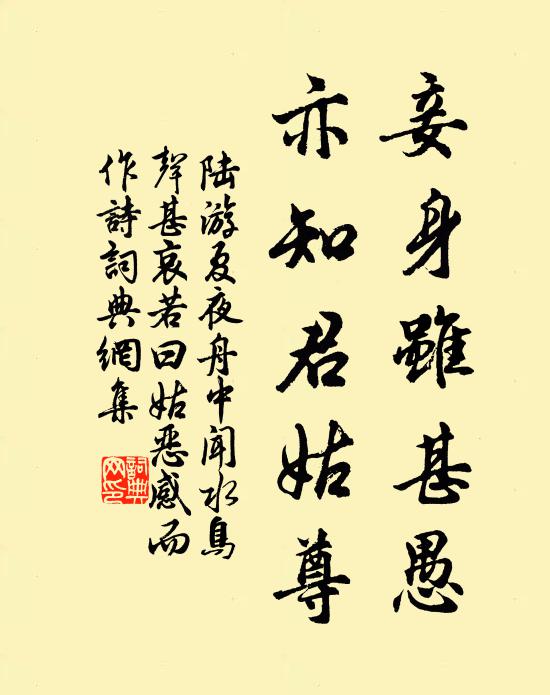 妾身雖甚愚
亦知君姑尊
陆游夏夜舟中闻水鳥
聲甚哀若曰姑惡感而
作詩詞典網集
詞典